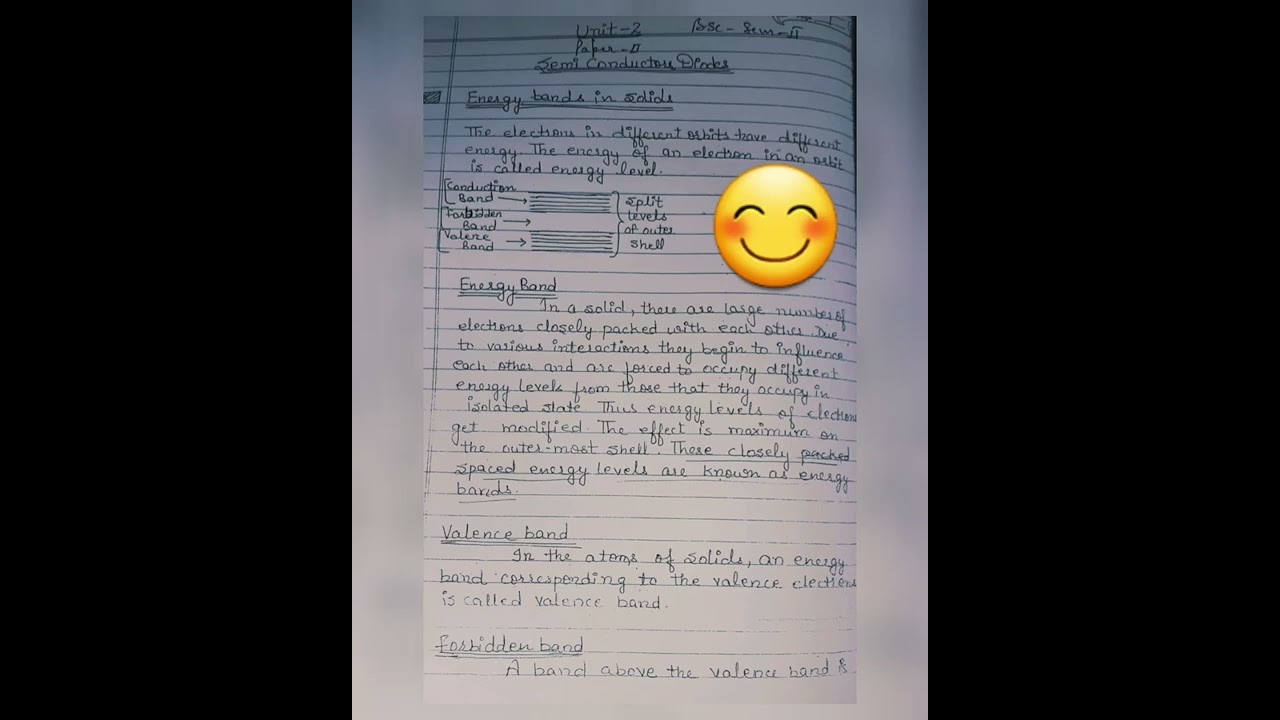 Unit-2 BSc-Sem-II
Paper-II
Semi Conductors Diodes
Energy bands in solids
The electrons in different orbits have different
energy. The energy of an electron in an orbit
is called energy level.
Conduction
Band
Forbidden
Band
Valence
Band
split
levels
of outer
shell
Energy Band
In a solid, there are large number of
electrons closely packed with each other. Due
to various interactions they begin to influence
each other and are forced to occupy different
energy levels from those that they occupy in
isolated state. Thus energy levels of electrons
get modified. The effect is maximum on
the outer-most shell. These closely packed
spaced energy levels are known as energy
bands.
Valence band
In the atoms of solids, an energy
band corresponding to the valence electrons
is called valence band.
Forbidden band
A band above the valence band &